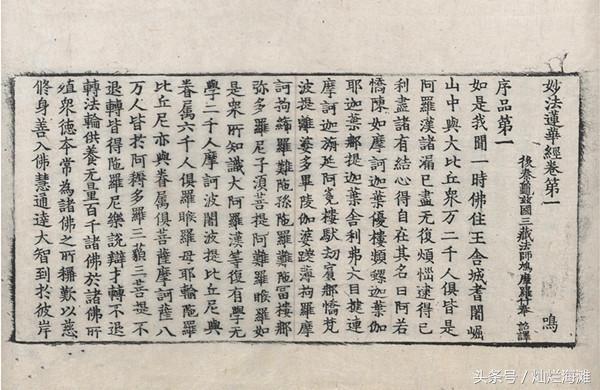 妙法蓮華經卷第一 鳴
後秦龜茲國三藏法師鳩摩羅什奉 詔譯
序品第一
如是我聞一時佛住王舍城耆闍崛
山中與大比丘衆万二千人俱皆是
阿羅漢諸漏已盡无復煩惱逮得已
利盡諸有結心得自在其名曰阿若
憍陳如摩訶迦葉優樓頻螺迦葉伽
耶迦葉那提迦葉舍利弗大目揵連
摩訶迦旃延阿㝹樓馱劫賓那憍梵
波提離婆多畢陵伽婆蹉薄拘羅摩
訶拘絺羅難陁孫陁羅難陁富樓那
弥多羅尼子湏菩提阿難羅睺羅如
是衆所知識大阿羅漢等復有學无
學二千人摩訶波闍波提比丘尼與
眷属六千人俱羅睺羅母耶輸陁羅
比丘尼亦與眷属俱菩薩摩訶薩八
万人皆於阿耨多羅三藐三菩提不
退轉皆得陁羅尼樂說辯才轉不退
轉法輪供養无量百千諸佛於諸佛所
殖衆德本常為諸佛之所稱歎以慈
修身善入佛慧通達大智到於彼岸
头条号／灿烂海滩